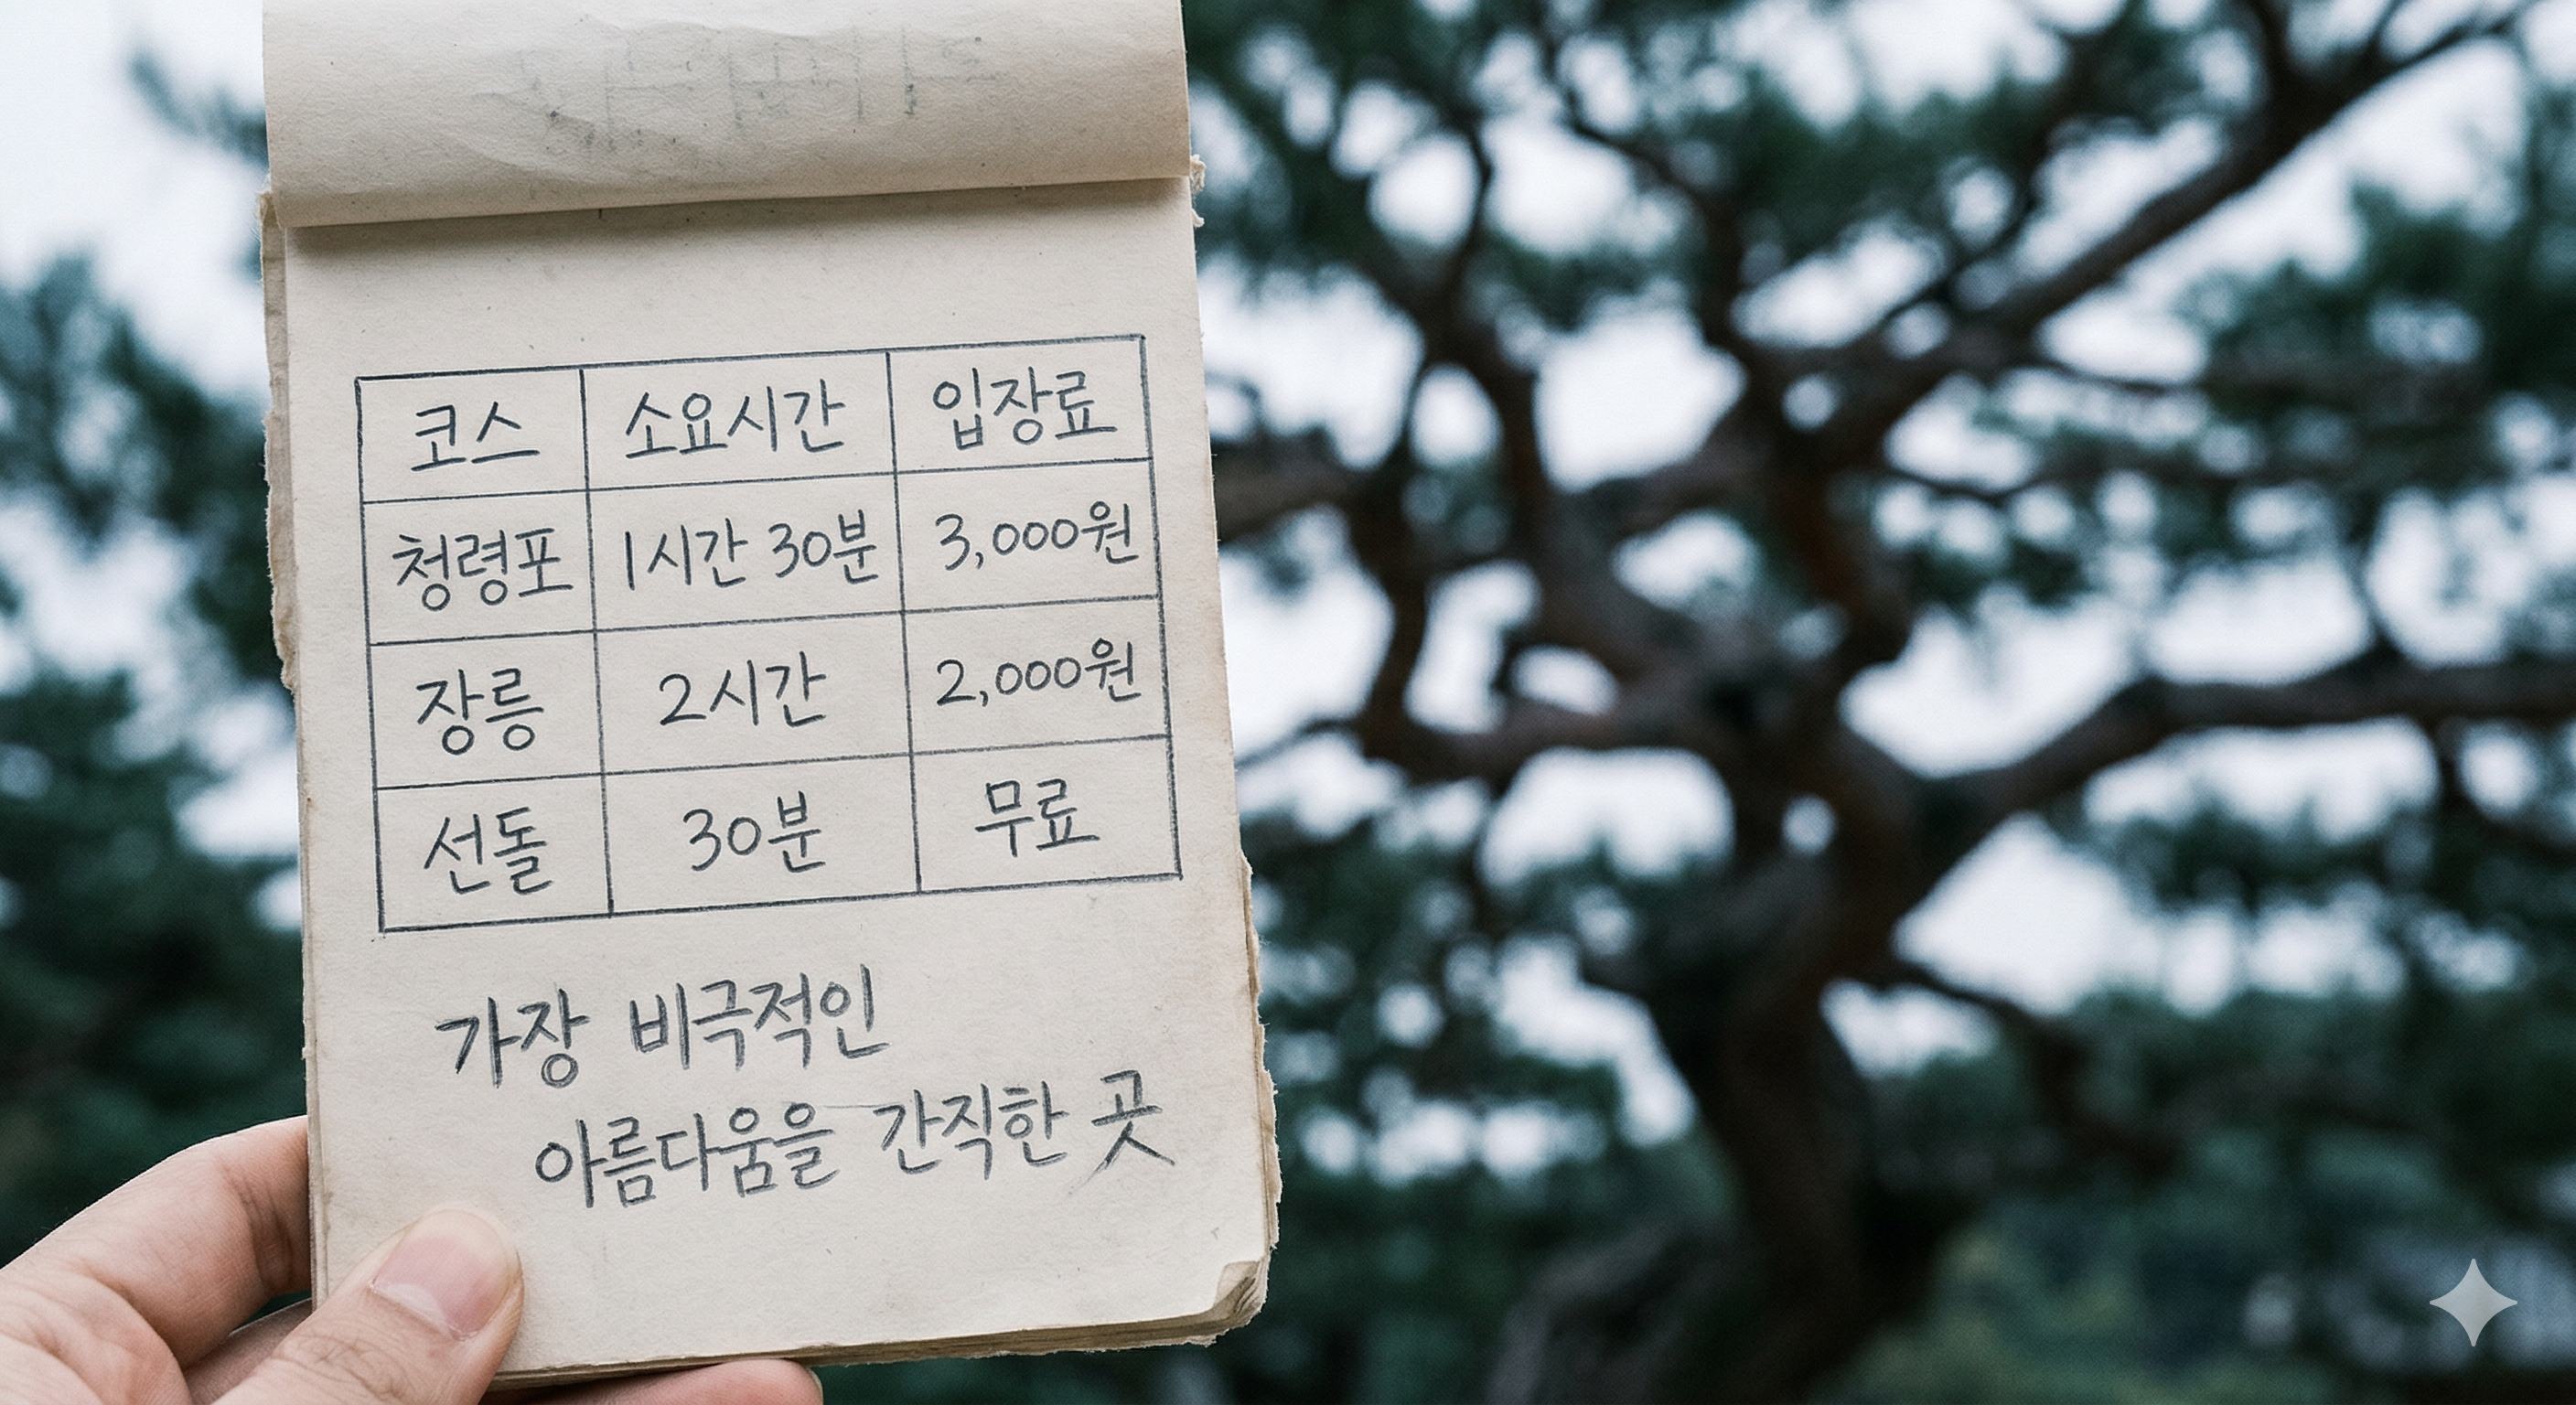 코스 소요시간 입장료
청령포 1시간 30분 3,000원
장릉 2시간 2,000원
선돌 30분 무료
가장 비극적인
아름다움을 간직한 곳